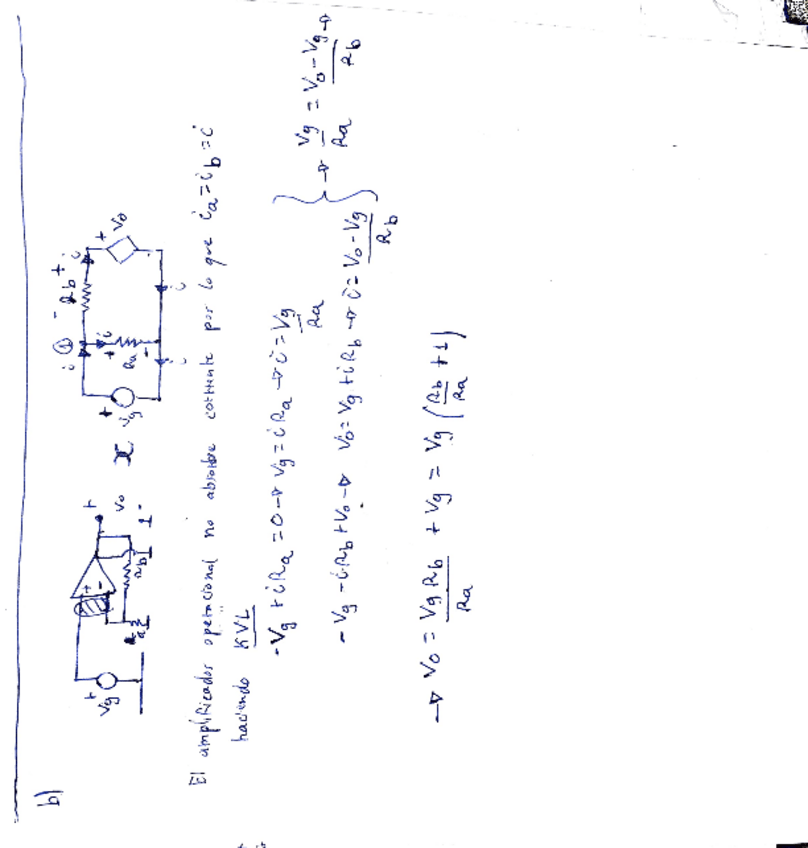 b)
Vg + + - Ra Rb + Vo -
+ Vg i ① - Rb + i + Vo
+ Ra - i i i
El amplificador operacional no absorbe corriente por lo que ia = ib = i
haciendo KVL
-Vg + iRa = 0 → Vg = iRa → i = Vg/Ra
-Vg - iRb + Vo → Vo = Vg + iRb → i = (Vo - Vg)/Rb
} → Vg/Ra = (Vo - Vg)/Rb →
→ Vo = VgRb/Ra + Vg = Vg (Rb/Ra + 1)